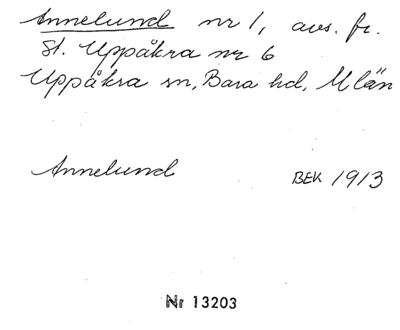 Annelund nr 1, avs. fr.
St. Uppåkra nr 6
Uppåkra sn, Bara hd, M län
Annelund BEK 1913
Nr 13203